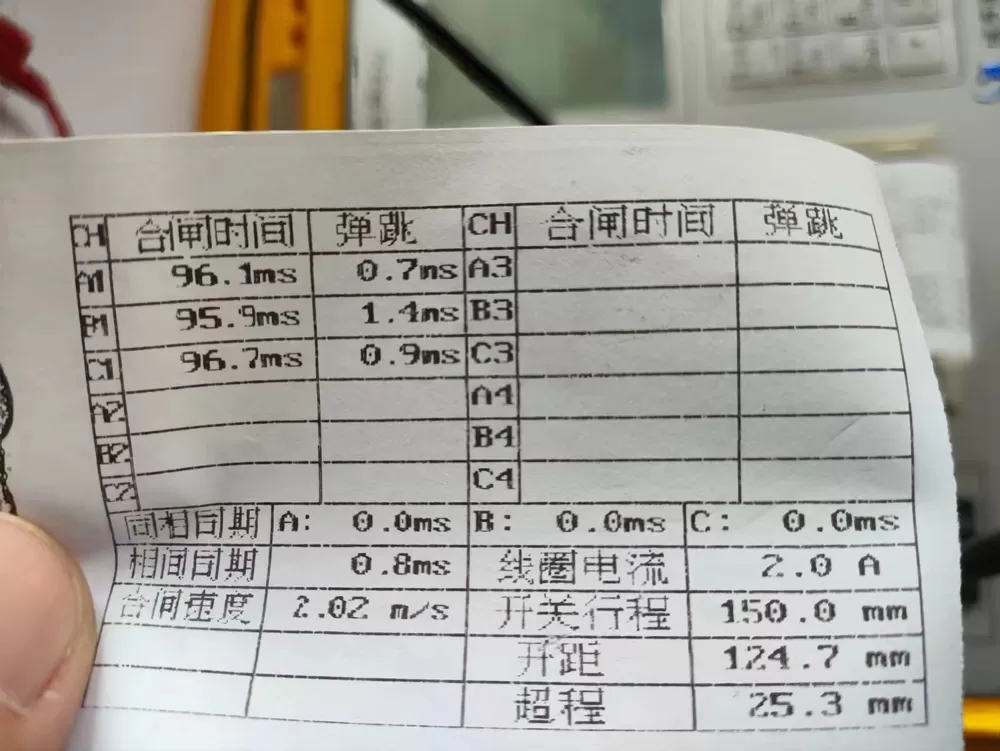 CH 合闸时间 弹跳 CH 合闸时间 弹跳
A1 96.1ms 0.7ms A3
B1 95.9ms 1.4ms B3
C1 96.7ms 0.9ms C3
A2 A4
B2 B4
C2 C4
同相同期 A: 0.0ms B: 0.0ms C: 0.0ms
相间同期 0.8ms 线圈电流 2.0 A
合闸速度 2.02 m/s 开关行程 150.0 mm
开距 124.7 mm
超程 25.3 mm